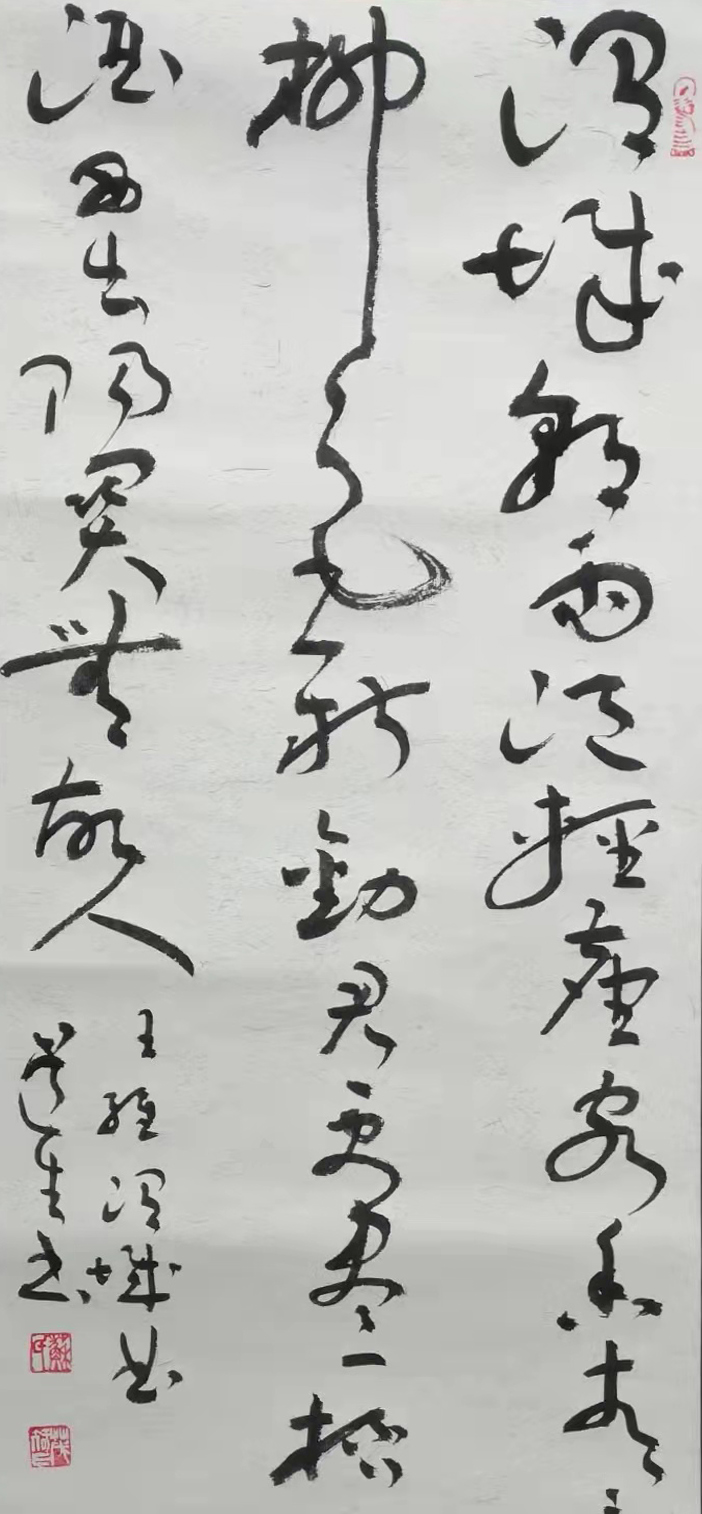 渭城朝雨浥輕塵客舍青〻
柳色新勸君更盡一杯
酒西出陽關無故人
王維渭城曲
道生书
蘇氏